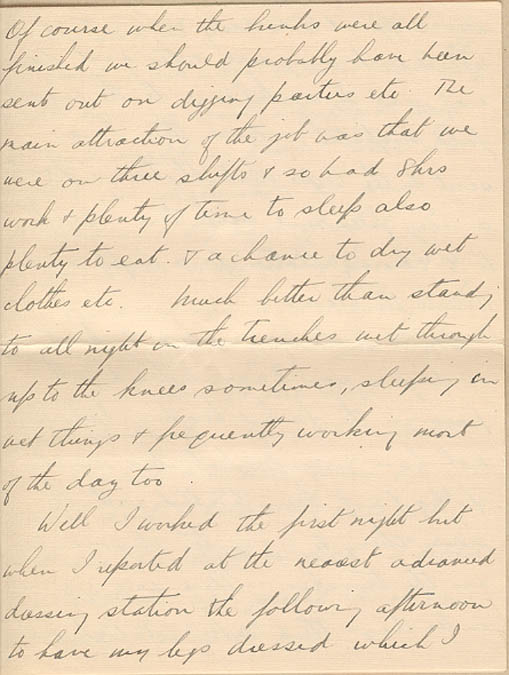 Of course when the bunks were all
finished we should probably have been
sent out on digging parties etc. The
main attraction of the job was that we
were on three shifts & so had 8hrs
work & plenty of time to sleep also
plenty to eat. & a chance to dry wet
clothes etc. Much better than standg
to all night in the trenches wet through
up to the knees sometimes, sleeping in
wet things & frequently working most
of the day too.
Well I worked the first night but
when I reported at the nearest advanced
dressing station the following afternoon
to have my legs dressed which I